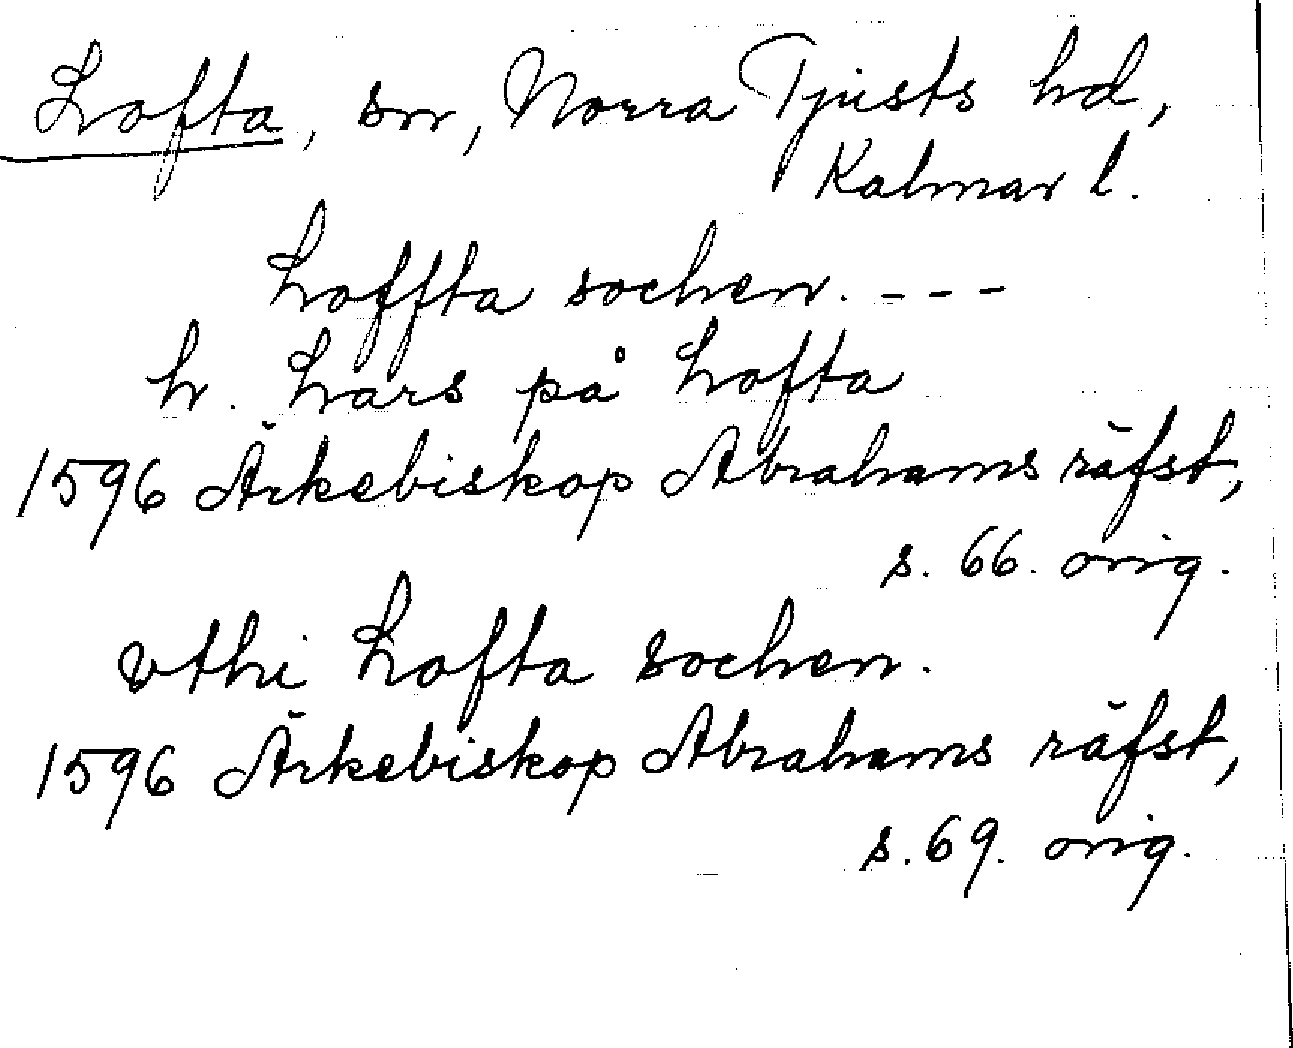 Lofta, sn, Norra Tjusts hd,
Kalmar l.
Loffta sochen. ---
h. Lars på Lofta
1596 Ärkebiskop Abrahams räfst,
s. 66. orig.
vthi Lofta sochen.
1596 Ärkebiskop Abrahams räfst,
s. 69. orig.